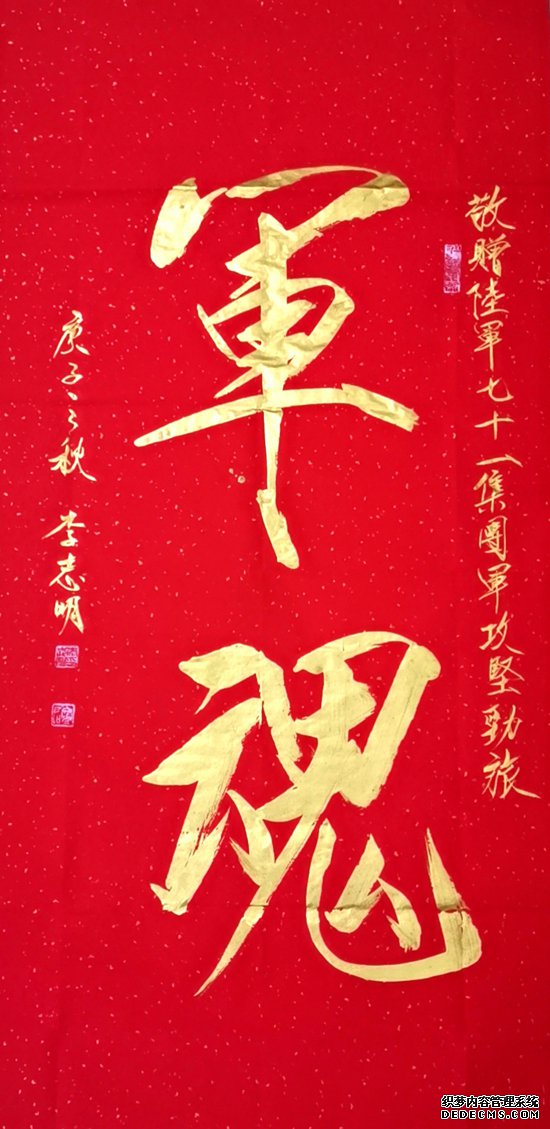 敬贈陸軍七十一集團軍攻堅勁旅
軍魂
庚子之秋 李志明
织梦内容管理系统
DEDECMS.COM